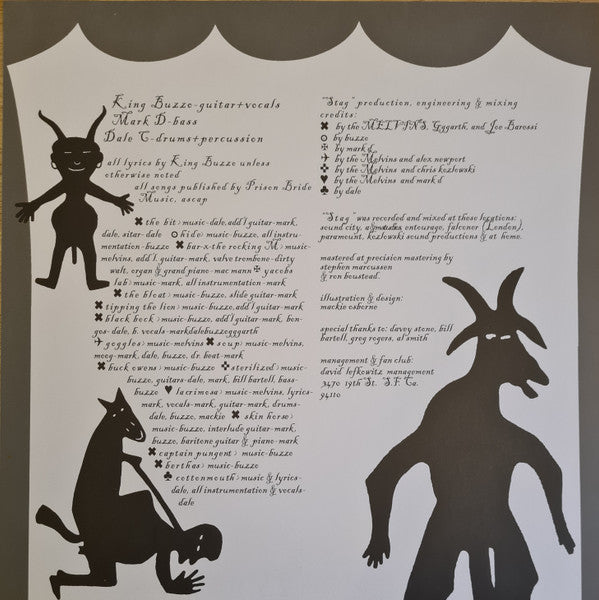 King Buzzo-guitar+vocals
Mark D-bass
Dale C-drums+percussion
all lyrics by King Buzzo unless
otherwise noted
all songs published by Prison Bride
Music, ascap
✖ the bit) music-dale, add'l guitar-mark,
dale, sitar-dale ✪ hide) music-buzzo, all instru-
mentation-buzzo ✖ bar-x-the rocking M) music-
melvins, add'l. guitar-mark, valve trombone-dirty
walt, organ & grand piano-mac mann ✠ yacobs
lab) music-mark, all instrumentation-mark
✖ the bloat) music-buzzo, slide guitar-mark
✖ tipping the lion) music-buzzo, add'l guitar-mark
✖ black bock) music-buzzo, add'l guitar-mark, bon-
gos-dale, b. vocals-markdalebuzzogggarth
✈ goggles) music-melvins ✖ soup) music-melvins,
moog-mark, dale, buzzo, dr. beat-mark
✖ buck owens) music-buzzo ✜ sterilized) music-
buzzo, guitars-dale, mark, bill bartell, bass-
buzzo ♥ lacrimosa) music-melvins, lyrics-
mark, vocals-mark, guitar-mark, drums-
dale, buzzo, mackie ✖ skin horse)
music-buzzo, interlude guitar-mark,
buzzo, baritone guitar & piano-mark
✖ captain pungent) music-buzzo
✖ berthas) music-buzzo
♣ cottonmouth) music & lyrics-
dale, all instrumentation & vocals-
dale
"Stag" production, engineering & mixing
credits:
✖ by the MELVINS, Gggarth, and Joe Barossi
✪ by buzzo
✠ by mark d
✈ by the Melvins and alex newport
✜ by the Melvins and chris kozlowski
♥ by the Melvins and mark d
♣ by dale
"Stag" was recorded and mixed at these locations:
sound city, a&m studios, entourage, falconer (London),
paramount, kozlowski sound productions & at home.
mastered at precision mastering by
stephen marcussen
& ron boustead.
illustration & design:
mackie osborne
special thanks to: davey stone, bill
bartell, greg rogers, al smith
management & fan club:
david lefkowitz management
3470 19th St. S.F. Ca.
94110